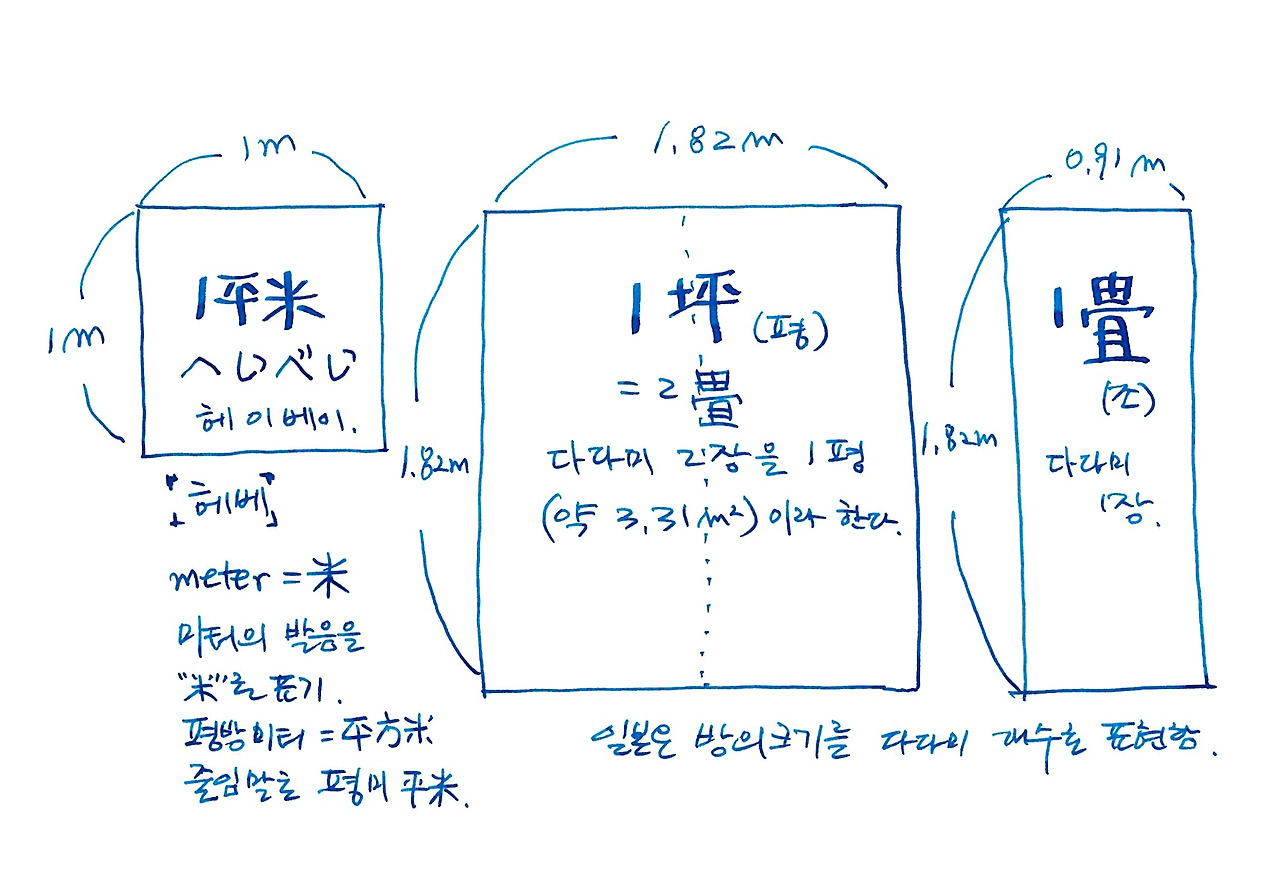 1m
1m
1平米
へいべい
헤이베이.
「헤베」
meter = 米
미터의 발음을
"米"로 표기.
평방미터 = 平方米
줄임말로 평미 平米.
1.82m
1.82m
1坪 (평)
= 2畳
다다미 2장을 1평
(약 3.31m²) 이라 한다.
0.91m
1.82m
1畳
(조)
다다미
1장.
일본은 방의크기를 다다미 개수로 표현함.